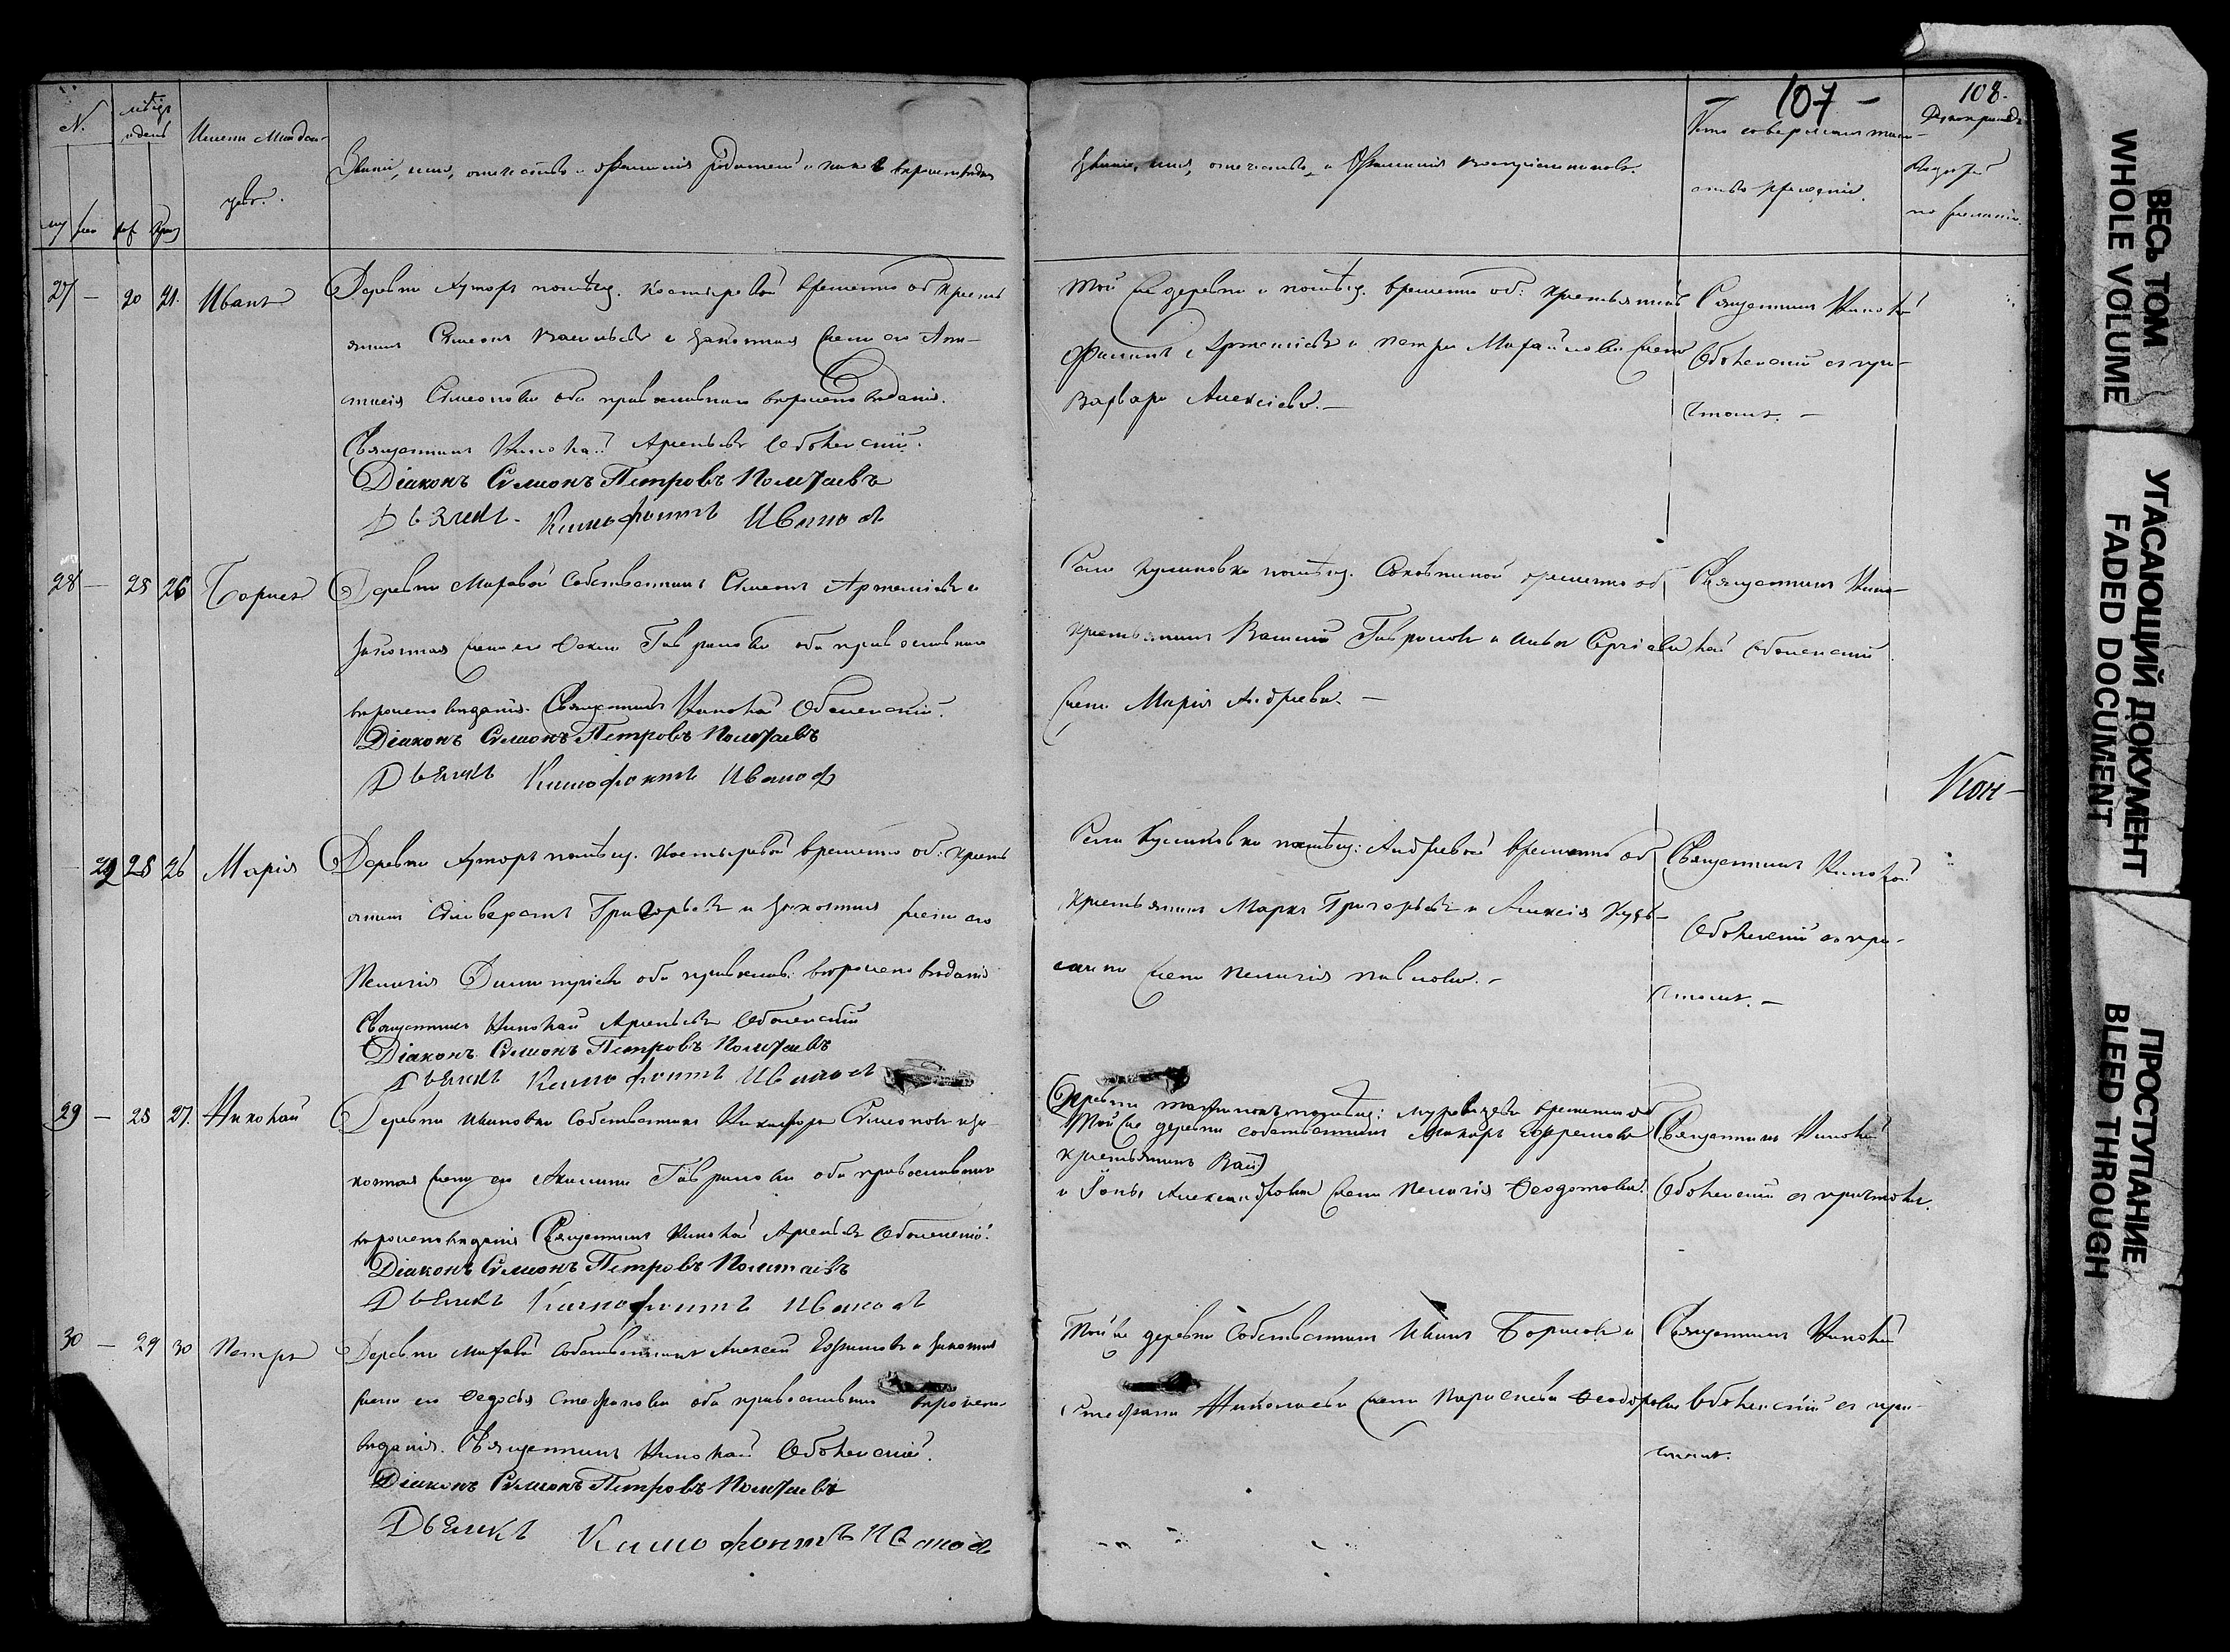 107
108.
N.
мѣсяцъ
и день
Имена Младен-
цевъ.
Званіе, имя, отечество и фамилія родителей и какого вѣроисповѣданія
Званіе, имя, отечество и фамилія воспріемниковъ.
Кто совершалъ таин-
ство крещенія.
му же рож кре
по желанію.
27 — 20 21. Иванъ
Деревни Хуторъ помѣщ. Костыревой временно об крестъ
янинъ Симеонъ Васильевъ и законная жена его Ана-
стасія Симеонова оба православнаго вѣроисповѣданія.
Священникъ Николай Арсеньевъ Оболенскій.
Діаконъ Сѵмеонъ Петровъ Полетаевъ
Дьячекъ Ксенофонтъ Ивановъ
той же деревни и помѣщ. временно об: крестьянинъ
Филиппъ Артемьевъ и Петра Михайлова жена
Варвара Алексіева. —
Священникъ Николай
Оболенскій съ при-
чтомъ. —
28 — 25 26 Борисъ
Деревни Маховой собственникъ Симеонъ Артемьевъ и
законная жена его Фекла Гаврилова оба православнаго
вѣроисповѣданія. Священникъ Николай Оболенскій.
Діаконъ Сѵмеонъ Петровъ Полетаевъ
Дьячекъ Ксенофонтъ Ивановъ
Села Куликовки помѣщ. временно об
крестьянинъ Василій Гавриловъ и Сергіева
жена Марія Андреева. —
Священникъ Нико-
лай Оболенскій
Кон-
29 25 26 Марія
Деревни Хуторъ помѣщ. Костыревой временно об: крестъ
янинъ Сильверстъ Григорьевъ и законная жена его
Пелагія Димитріева оба православ: вѣроисповѣданія
Священникъ Николай Арсеньевъ Оболенскій
Діаконъ Сѵмеонъ Петровъ Полетаевъ
Дьячекъ Ксенофонтъ Ивановъ
Села Куликовки помѣщ: Андреевой временно об
крестьянинъ Маркъ Григорьевъ и Алексія Кузь-
жена Пелагія Павлова. —
Священникъ Николай
Оболенскій съ при-
чтомъ. —
29 — 25 27. Николай
Деревни Ивановки собственникъ Никифоръ Симеоновъ и за-
конная жена его Акилина Гаврилова оба православнаго
вѣроисповѣданія Священникъ Николай Арсеньевъ Оболенскій.
Діаконъ Сѵмеонъ Петровъ Полетаевъ
Дьячекъ Ксенофонтъ Ивановъ
Деревни помѣщ: временно об
Той же деревни собственникъ Макаръ Ефремовъ
крестьянинъ Вас
и Іоны Александрова жена Пелагія Феодотова.
Священникъ Николай
Оболенскій съ причтомъ.
30 — 29 30 Петръ
Деревни Маховой собственникъ Алексей и законная
жена его Федосья Стефанова оба православнаго вѣроиспо-
вѣданія. Священникъ Николай Оболенскій.
Діаконъ Сѵмеонъ Петровъ Полетаевъ
Дьячекъ Ксенофонтъ Ивановъ
Той же деревни собственникъ Иванъ Борисовъ и
Стефана Николаева жена Параскева Феодорова
Священникъ Николай
Оболенскій съ при-
чтомъ.
ВЕСЬ ТОМ
WHOLE VOLUME
УГАСАЮЩИЙ ДОКУМЕНТ
FADED DOCUMENT
ПРОСТУПАНИЕ
BLEED THROUGH